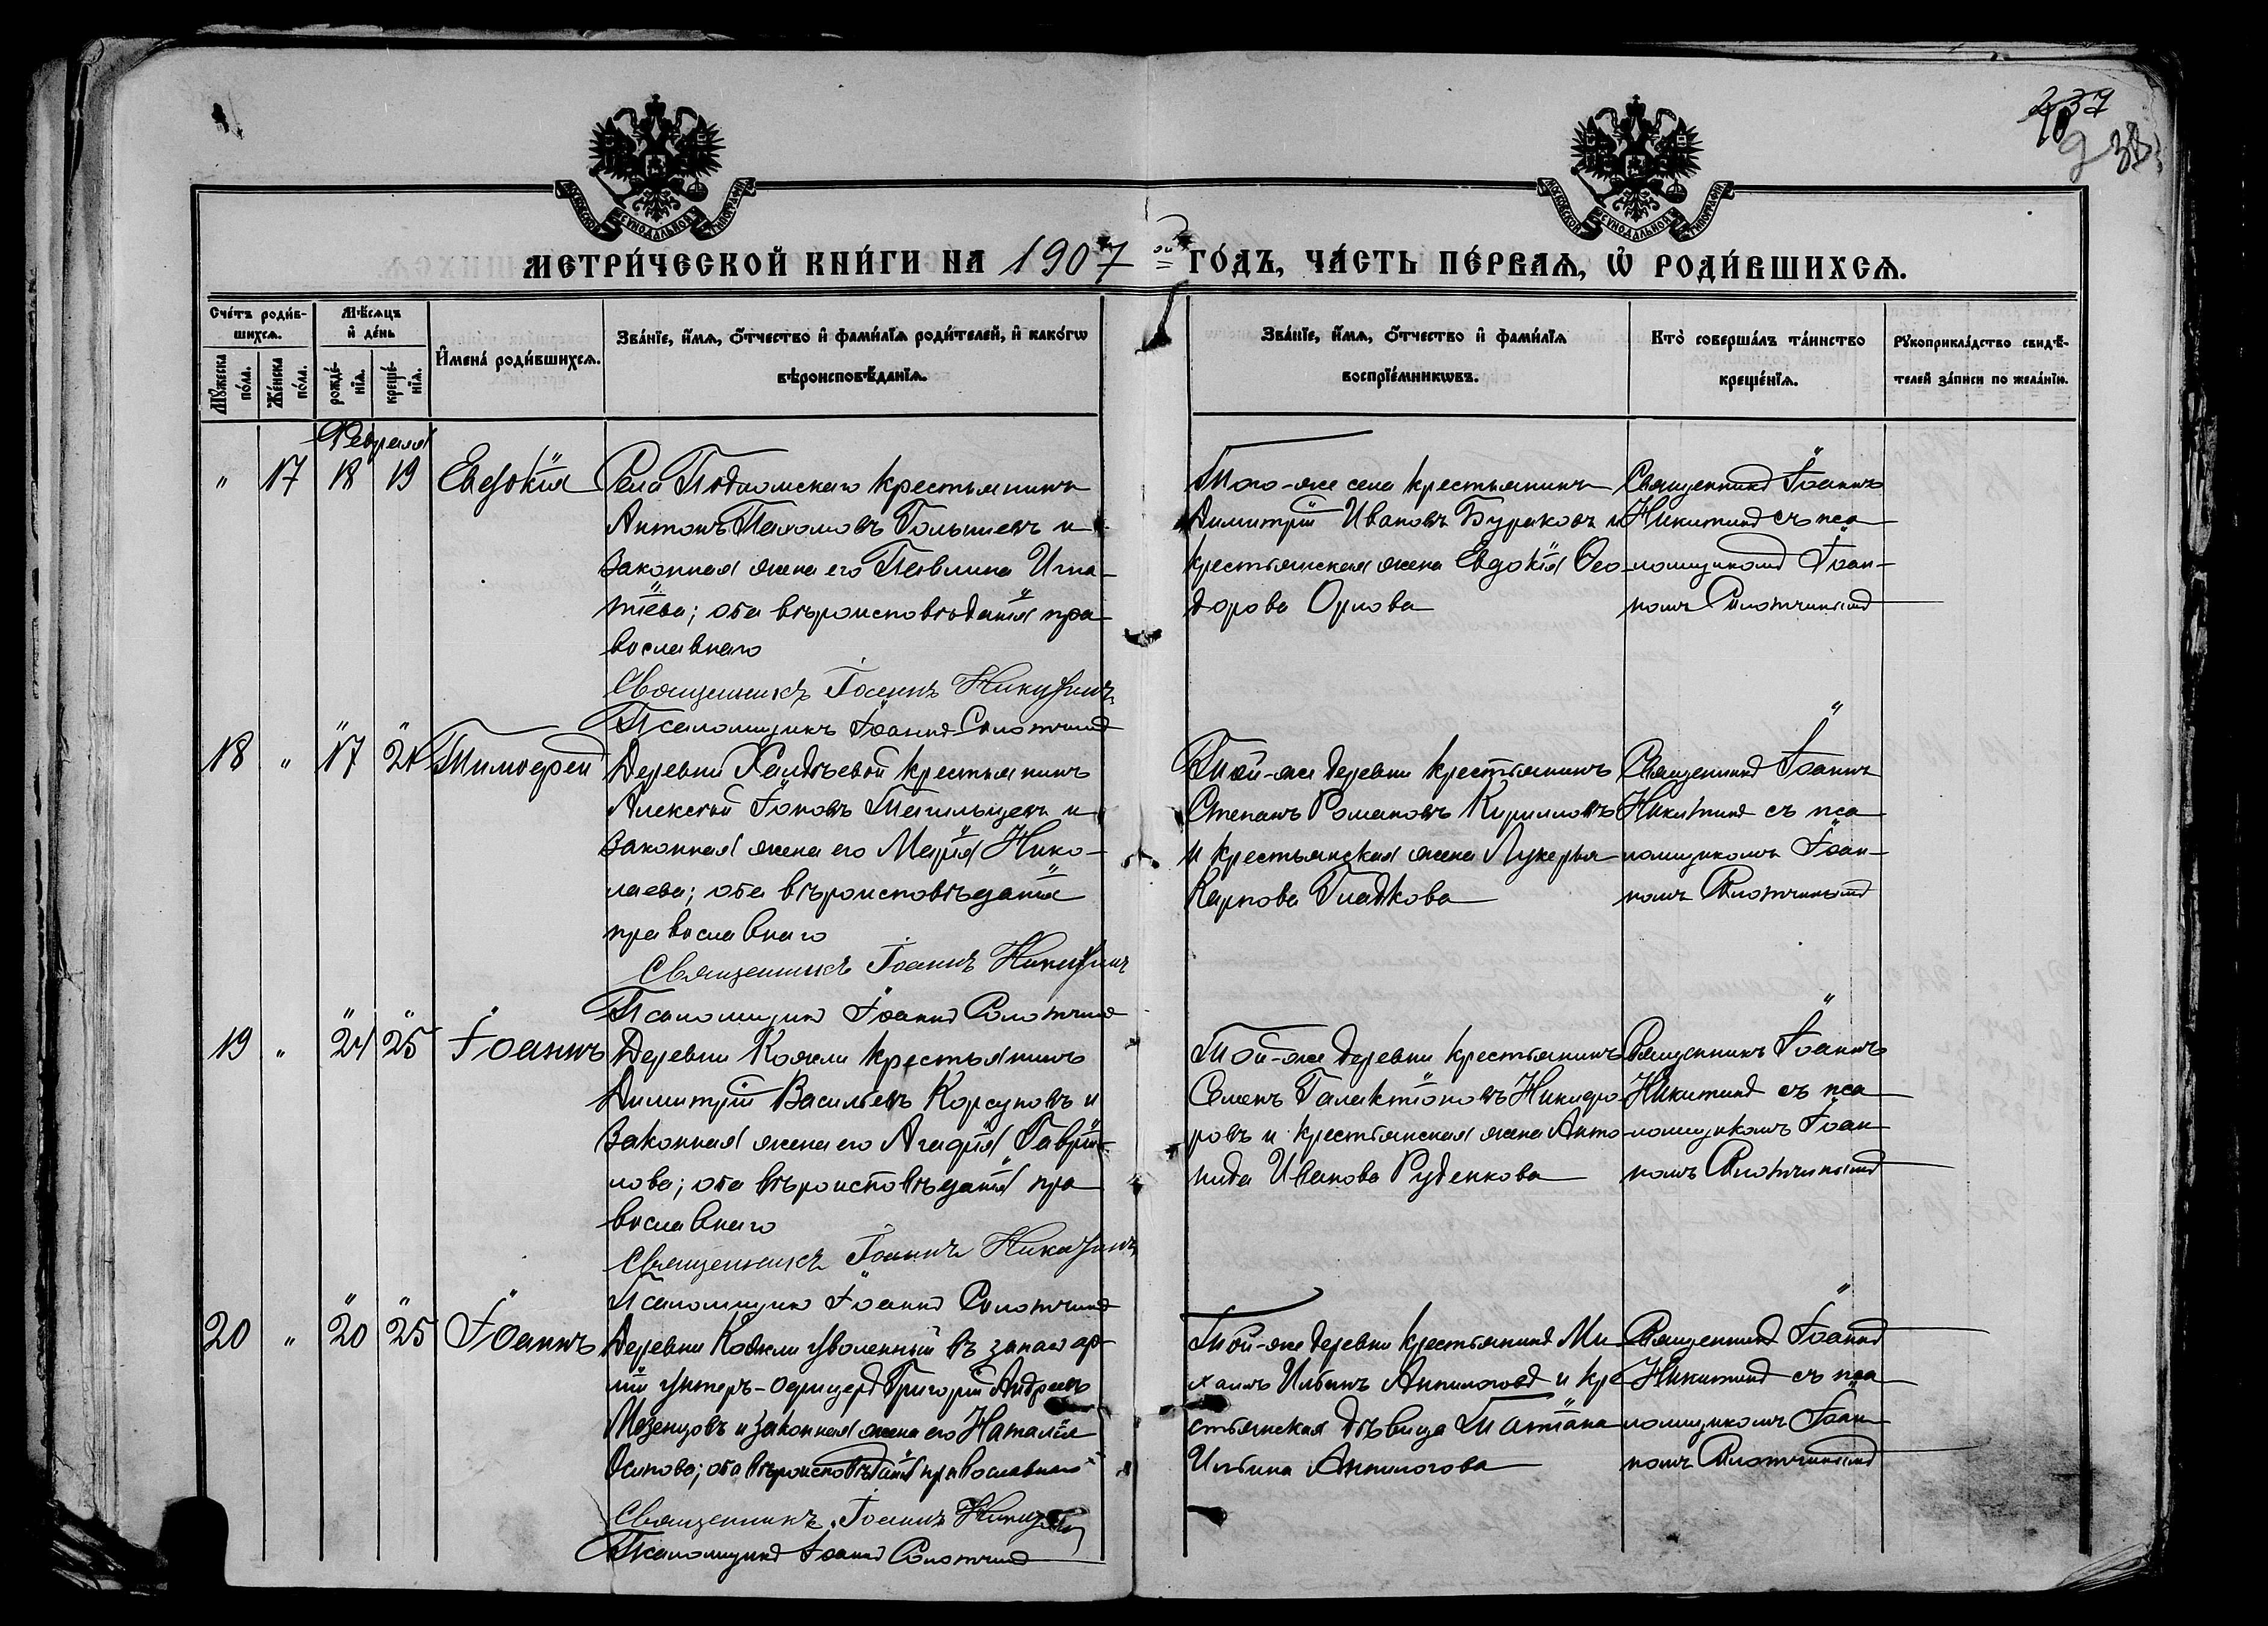 237
10
238
МОСКОВСКОЙ СѴНОДАЛЬНОЙ ТИПОГРАФІИ
МОСКОВСКОЙ СѴНОДАЛЬНОЙ ТИПОГРАФІИ
МЕТРИ́ЧЕСКОЙ КНИ́ГИ НА 1907 ой ГО́ДЪ, ЧА́СТЬ ПЕ́РВАѦ, Ѡ҆ РОДИ́ВШИХСѦ.
Сче́тъ роди́в-
шихсѧ.
Мꙋ́жеска по́ла.
Же́нска по́ла.
Мѣ́сѧцъ
и҆ де́нь
рожде́-
нїѧ.
креще́-
нїѧ.
И҆мена̀ роди́вшихсѧ.
Зва́нїе, и҆́мѧ, ѻ҆́тчество и҆ фами́лїѧ роди́телей, и҆ како́гѡ
вѣроисповѣ́данїѧ.
Зва́нїе, и҆́мѧ, ѻ҆́тчество и҆ фами́лїѧ
воспрїе́мникѡвъ.
Кто̀ соверша́лъ та́инство
креще́нїѧ.
Рꙋкоприкла́дство свидѣ́-
телей за́писи по жела́нїю.
Февраля
" 17 18 19 Евдокія
Села Подгомскаго крестьянинъ
Антонъ Пахомовъ Голышевъ и
законная жена его Павлина Игна-
тіева; оба вѣроисповѣданія пра
вославнаго
Священникъ Іоаннъ Никитинъ
Псаломщикъ Іоаннъ Солотчинъ
Того-же села крестьянинъ
Димитрій Ивановъ Бураковъ и
крестьянская жена Евдокія Ѳео
дорова Орлова
Священникъ Іоаннъ
Никитинъ съ пса
ломщикомъ Іоан-
номъ Солотчинымъ
18 " 17 21 Тимоѳей
Деревни крестьянинъ
Алексѣй Іоновъ и
законная жена его Марія Нико-
лаева; оба вѣроисповѣданія
православнаго
Священникъ Іоаннъ Никитинъ
Псаломщикъ Іоаннъ Солотчинъ
Той-же деревни крестьянинъ
Степанъ Романовъ Кирилловъ
и крестьянская жена Лукерья
Карпова Гладкова
Священникъ Іоаннъ
Никитинъ съ пса
ломщикомъ Іоан-
номъ Солотчинымъ
19 " 24 25 Іоаннъ
Деревни Кожли крестьянинъ
Димитрій Васильевъ Корсуновъ и
законная жена его Агафія Гаврии-
лова; оба вѣроисповѣданія пра
вославнаго
Священникъ Іоаннъ Никитинъ
Псаломщикъ Іоаннъ Солотчинъ
Той-же деревни крестьянинъ
Семенъ Галактіоновъ Никифо
ровъ и крестьянская жена Анто
нида Иванова Руденкова
Священникъ Іоаннъ
Никитинъ съ пса
ломщикомъ Іоан
номъ Солотчинымъ
20 " 20 25 Іоаннъ
Деревни Кожли уволенный въ запасъ ар-
міи унтеръ-офицеръ Григорій Андреевъ
Мезенцовъ и законная жена его Наталія
Осипова; оба вѣроисповѣданія православнаго
Священникъ Іоаннъ Никитинъ
Псаломщикъ Іоаннъ Солотчинъ
Той-же деревни крестьянинъ Ми
хаилъ Ильинъ Анпилоговъ и кре
стьянская дѣвица Татіана
Ильина Анпилогова
Священникъ Іоаннъ
Никитинъ съ пса
ломщикомъ Іоан
номъ Солотчинымъ